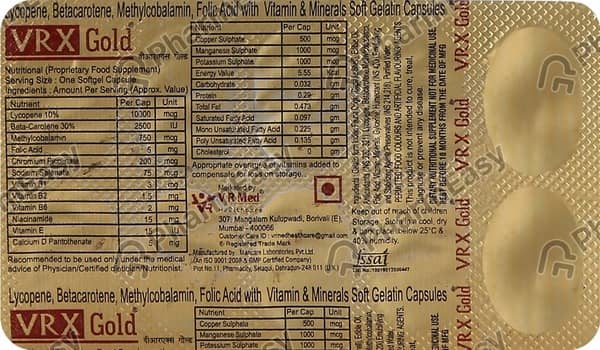 Lycopene, Betacarotene, Methylcobalamin, Folic Acid with Vitamin & Minerals Soft Gelatin Capsules
VRX Gold
वीआरएक्स गोल्ड
Nutritional (Proprietary Food Supplement)
Serving Size : One Softgel Capsule
Ingredients : Amount Per Serving (Approx. Value)
Nutrient Per Cap Unit
Lycopene 10% 10000 mcg
Beta-Carotene 30% 2500 IU
Methylcobalamin 750 mcg
Folic Acid 5 mg
Chromium Picolinate 200 mcg
Sodium Selenate 75 mcg
Vitamin B1 3 mg
Vitamin B2 1.5 mg
Vitamin B6 1.5 mg
Niacinamide 15 mg
Vitamin E 15 IU
Calcium D Pantothenate 5 mg
Recommended to be used only under the medical
advice of Physician/Certified dietician/Nutritionist.
Nutrient Per Cap Unit
Copper Sulphate 500 mcg
Manganese Sulphate 1000 mcg
Potassium Sulphate 1000 mcg
Energy Value 5.55 Kcal
Carbohydrate 0.032 gm
Protein 0.29 gm
Total Fat 0.473 gm
Saturated Fatty Acid 0.097 gm
Mono Unsaturated Fatty Acid 0.225 gm
Poly Unsaturated Fatty Acid 0.135 gm
Cholesterol 0 gm
Appropriate overage of vitamins added to
compensate for loss on storage.
Marketed by
VR Med
Healthcare
307, Mangalam Kulupwadi, Borivali (E),
Mumbai - 400066
Customer Care ID : vrmedhealthcare@gmail.com
® Registered Trade Mark
An ISO 9001:2008 & GMP Certified Company
Plot No.11, Pharmacity, Selaqui, Dehradun-248 011 (U.K.)
PERMITTED FOOD COLOURS AND ARTIFICIAL FLAVOURING AGENTS
This product is not intended to cure, treat,
or prevent any disease.
DIETARY / NUTRITIONAL SUPPLEMENT NOT FOR MEDICINAL USE.
BEST BEFORE 18 MONTHS FROM THE DATE OF MFG
Keep out of reach of children
Storage : Store in a cool, dry
& dark place below 25°C &
40% humidity.
fssai
VRX Gold
VRX Gold
VRX Gold
Lycopene, Betacarotene, Methylcobalamin, Folic Acid with Vitamin & Minerals Soft Gelatin Capsules
VRX Gold®
वीआरएक्स गोल्ड
Nutrient Per Cap Unit
Copper Sulphate 500 mcg
Manganese Sulphate 1000 mcg
Potassium Sulphate 1000 mcg